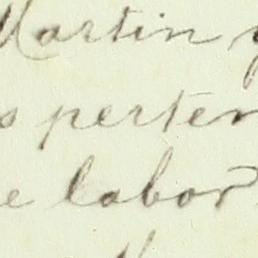 Martin
perten
labor